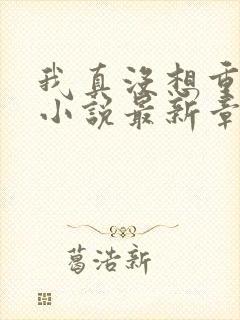 我真没想重
小说最新章
葛浩新